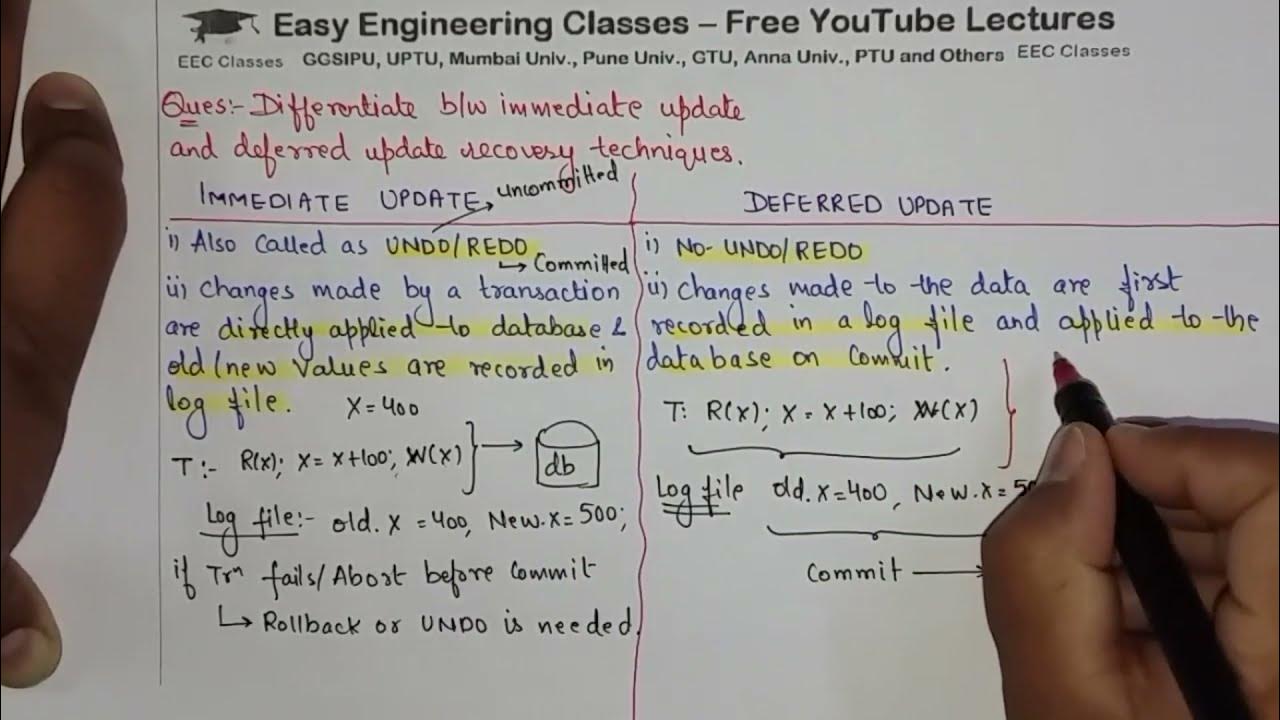 Easy Engineering Classes – Free YouTube Lectures
EEC Classes GGSIPU, UPTU, Mumbai Univ., Pune Univ., GTU, Anna Univ., PTU and Others EEC Classes
Ques:- Differentiate b/w immediate update
and deferred update recovery techniques.
IMMEDIATE UPDATE → uncommitted
i) Also called as UNDO/REDO
↳ Committed
ii) Changes made by a transaction
are directly applied to database &
old/new values are recorded in
log file. X=400
T:- R(X); X = X+100; W(X) → db
Log file:- old.X = 400, New.X = 500;
if Trⁿ fails/Abort before commit
↳ Rollback or UNDO is needed.
DEFERRED UPDATE
i) NO-UNDO/REDO
ii) Changes made to the data are first
recorded in a log file and applied to the
database on commit.
T: R(X); X = X+100; W(X)
Log file old.X=400, New.X=
Commit →